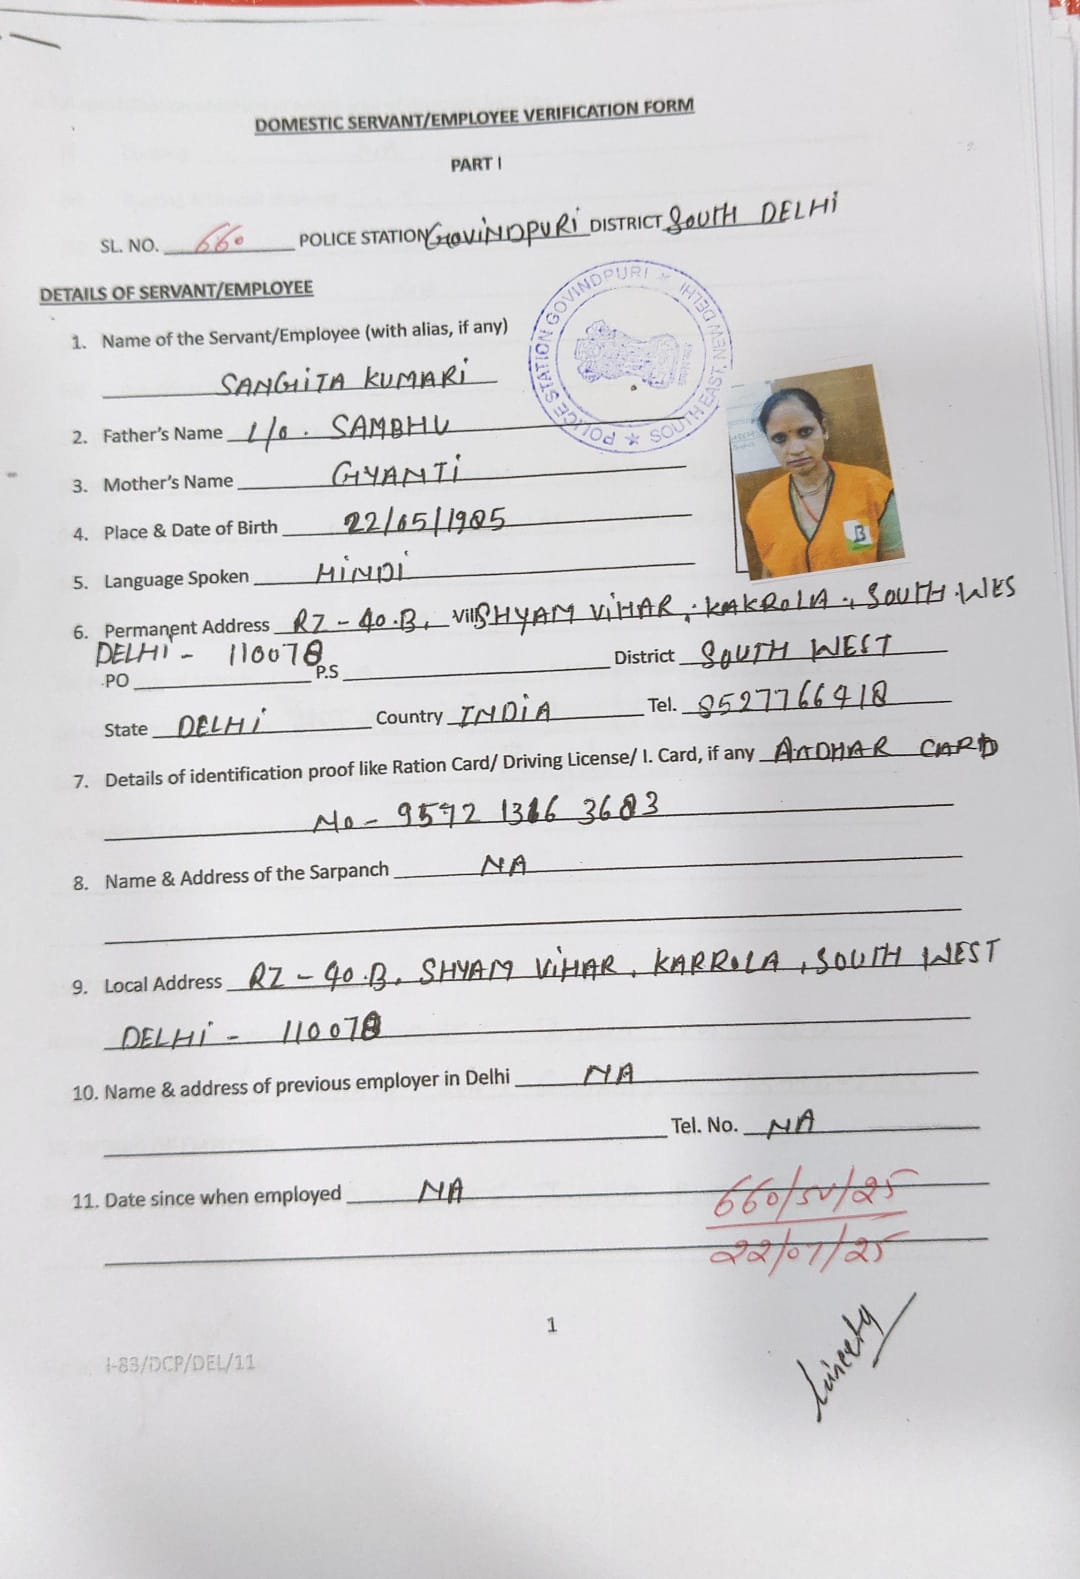 DOMESTIC SERVANT/EMPLOYEE VERIFICATION FORM
PART I
SL. NO. 660 POLICE STATION GOVINDPURI DISTRICT SOUTH DELHI
DETAILS OF SERVANT/EMPLOYEE
POLICE STATION GOVINDPURI SOUTH EAST, NEW DELHI
1. Name of the Servant/Employee (with alias, if any)
SANGITA KUMARI
2. Father's Name SAMBHU
3. Mother's Name GYANTI
4. Place & Date of Birth 22/05/1985
5. Language Spoken HINDI
6. Permanent Address RZ-40.B, Vill SHYAM VIHAR, KAKROLA, SOUTH WES
DELHI - 110078
PO P.S District SOUTH WEST
State DELHI Country INDIA Tel. 8527766418
7. Details of identification proof like Ration Card/ Driving License/ I. Card, if any AADHAR CARD
No - 9592 1316 3683
8. Name & Address of the Sarpanch NA
9. Local Address RZ-40.B, SHYAM VIHAR, KARROLA, SOUTH WEST
DELHI - 110078
10. Name & address of previous employer in Delhi NA
Tel. No. NA
11. Date since when employed NA
660/SV/25
22/07/25
1
I-83/DCP/DEL/11